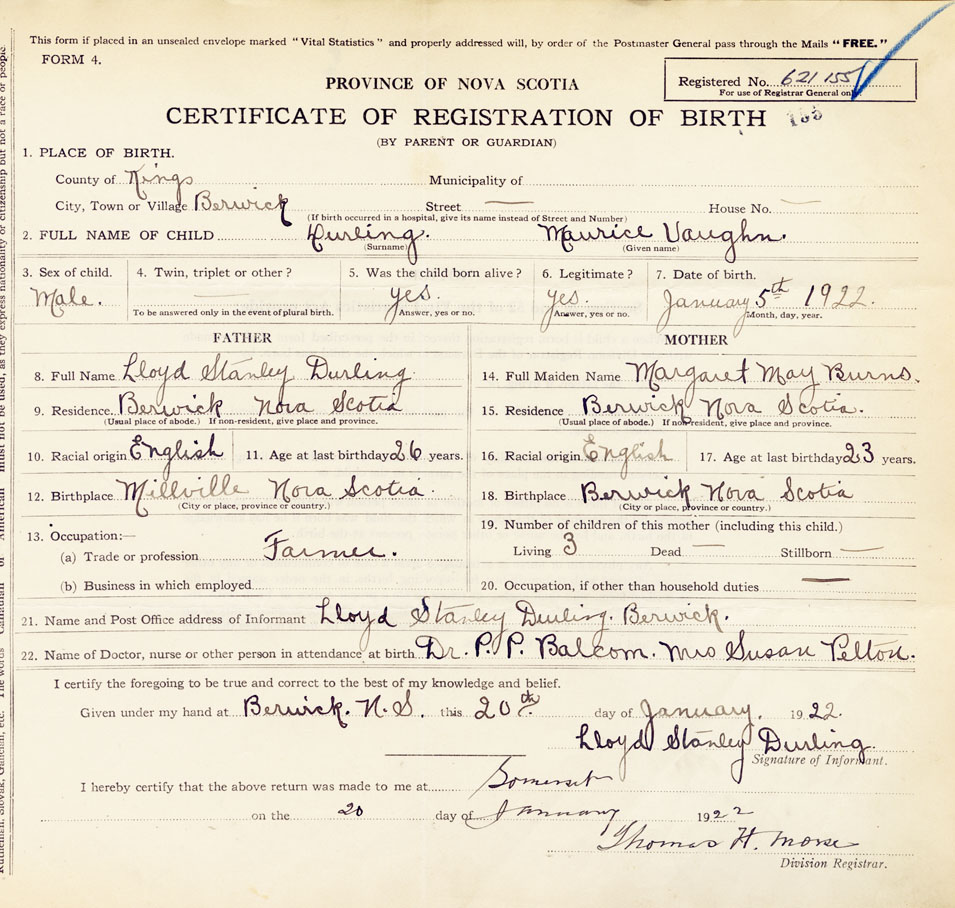 This form if placed in an unsealed envelope marked "Vital Statistics" and properly addressed will, by order of the Postmaster General pass through the Mails "FREE."
FORM 4.
Registered No. 621 155
For use of Registrar General only.
PROVINCE OF NOVA SCOTIA
CERTIFICATE OF REGISTRATION OF BIRTH 155
(BY PARENT OR GUARDIAN)
1. PLACE OF BIRTH.
County of Kings Municipality of
City, Town or Village Berwick Street — House No. —
(If birth occurred in a hospital, give its name instead of Street and Number)
2. FULL NAME OF CHILD Durling. Maurice Vaughn.
(Surname) (Given name)
3. Sex of child. 4. Twin, triplet or other? 5. Was the child born alive? 6. Legitimate? 7. Date of birth.
Male. — yes. yes. January 5th 1922.
To be answered only in the event of plural birth. Answer, yes or no. Answer, yes or no. Month, day, year.
FATHER MOTHER
8. Full Name Lloyd Stanley Durling 14. Full Maiden Name Margaret May Burns.
9. Residence. Berwick Nova Scotia 15. Residence Berwick Nova Scotia.
(Usual place of abode.) If non-resident, give place and province. (Usual place of abode.) If non-resident, give place and province.
10. Racial origin English 11. Age at last birthday 26 years. 16. Racial origin English 17. Age at last birthday 23 years.
12. Birthplace Millville Nova Scotia. 18. Birthplace Berwick Nova Scotia
(City or place, province or country.) (City or place, province or country.)
13. Occupation:— 19. Number of children of this mother (including this child.)
(a) Trade or profession Farmer. Living 3 Dead — Stillborn —
(b) Business in which employed 20. Occupation, if other than household duties —
21. Name and Post Office address of Informant Lloyd Stanley Durling. Berwick.
22. Name of Doctor, nurse or other person in attendance at birth Dr. P. P. Balcom. Mrs Susan Pelton.
I certify the foregoing to be true and correct to the best of my knowledge and belief.
Given under my hand at Berwick. N. S. this 20th day of January. 1922.
Lloyd Stanley Durling.
Signature of Informant.
I hereby certify that the above return was made to me at Somerset
on the 20 day of January 1922
Thomas H. Morse
Division Registrar.